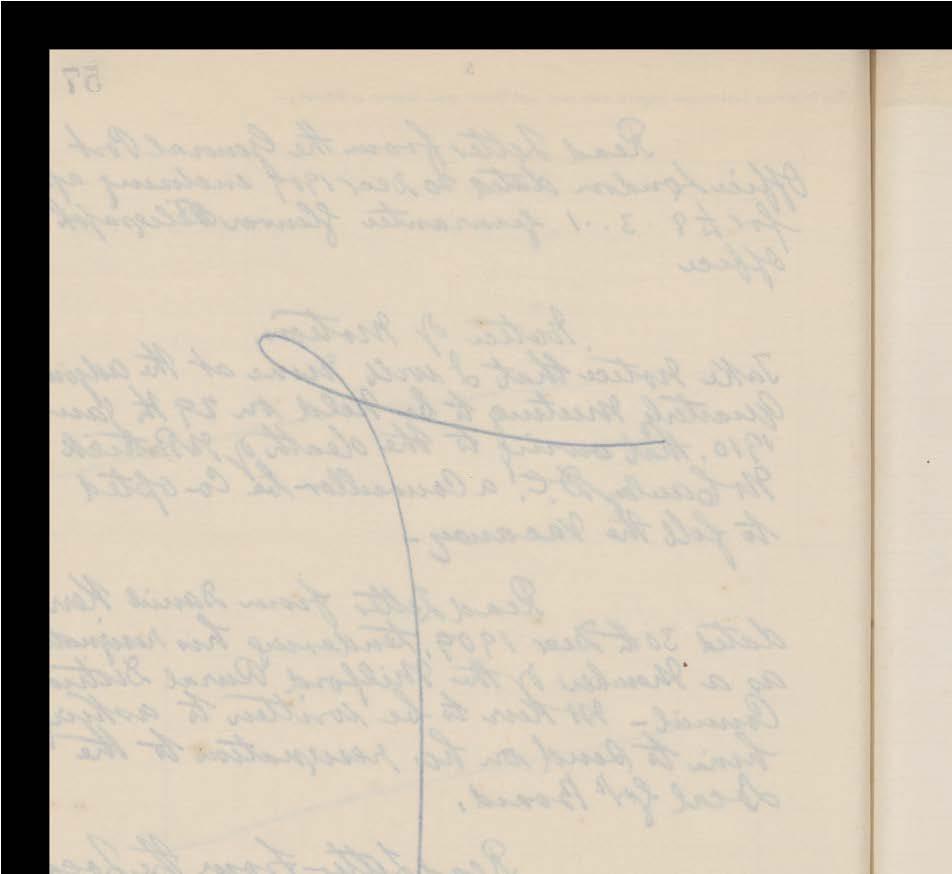 57
Read Letter from the General Post
Office London dated 20 Decr enclosing
for £8 3 guarantee Telegraph
Office
Notice of Motion
Take Notice that I will move at the
Quarterly Meeting to be held on 29th Jan
1910. that owing to the death of Patrick
D.C. a Councillor be Co-opted
to fill the Vacancy -
Read Letter from Daniel Kerr
dated 30th Decr 1909, tendering his
as a Member of the Milford Rural
Council - Mr Kerr to be written to asking
him to send on his resignation to the
Local Govt Board.
Read Letter from the